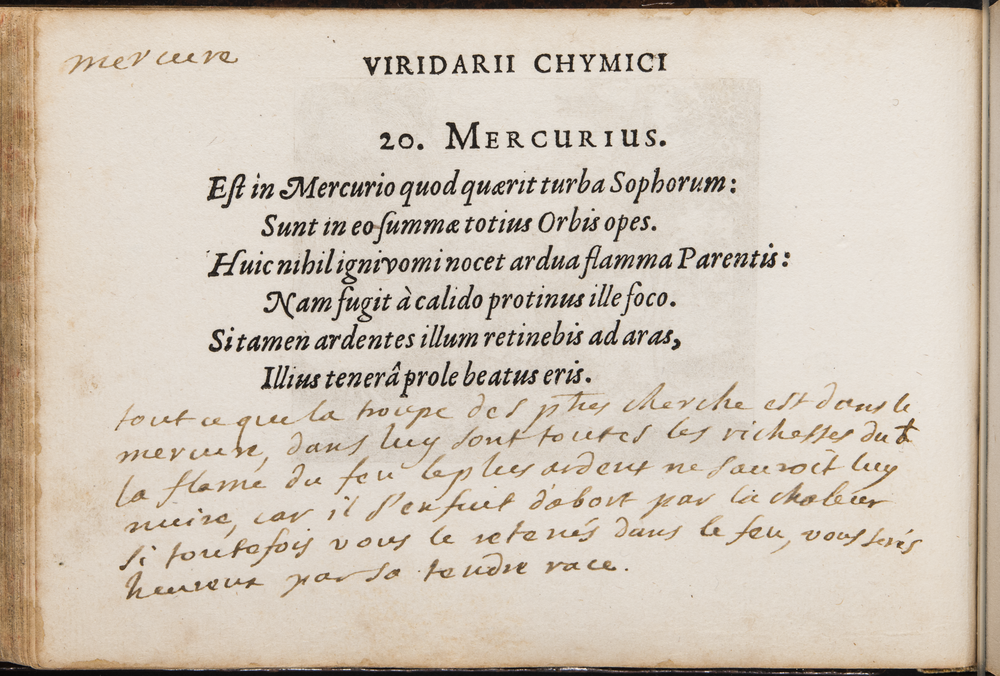 mercure
VIRIDARII CHYMICI
20. MERCURIUS.
Eſt in Mercurio quod quærit turba Sophorum:
Sunt in eo ſummæ totius Orbis opes.
Huic nihil ignivomi nocet ardua flamma Parentis:
Nam fugit à calido protinus ille foco.
Si tamen ardentes illum retinebis ad aras,
Illius tenerâ prole beatus eris.
tout ce que la troupe des phes cherche est dans le
mercure, dans luy sont toutes les richesses du
la flame du feu le plus ardent ne sauroit luy
nuire, car il s'enfuit d'abort par la chaleur
si toutefois vous le retenés dans le feu, vous serés
heureux par sa tendre race.